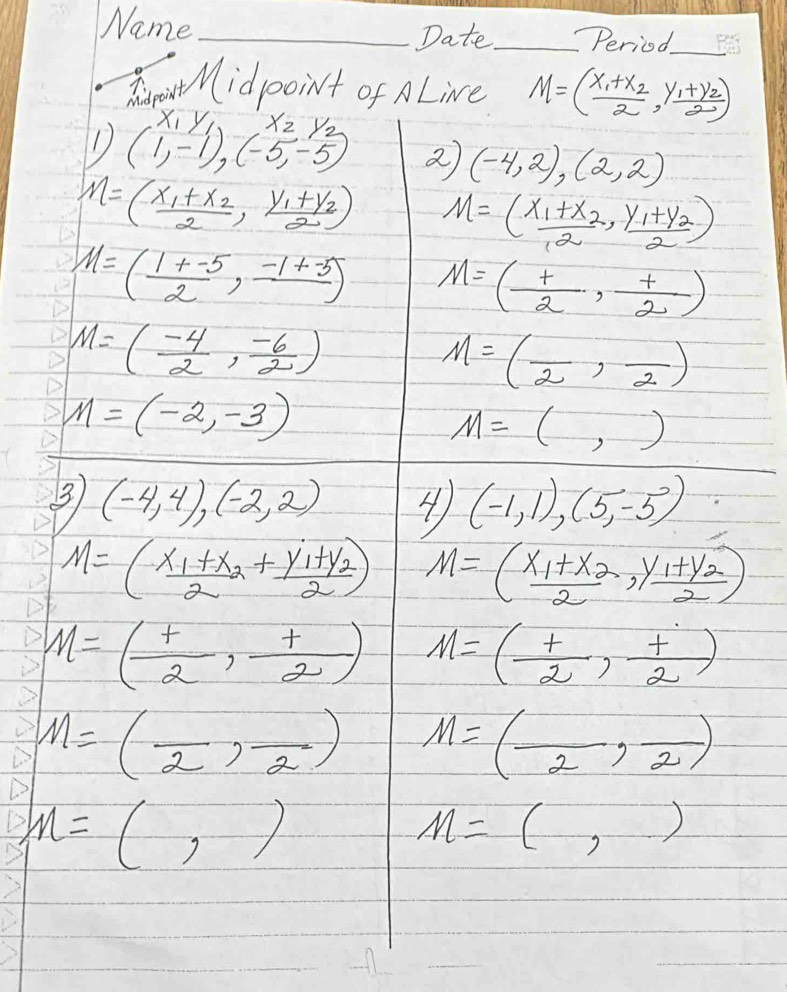 Name____________ Date_____ Period____
Midpoint Midpoint of A Line M=(x₁+x₂/2, y₁+y₂/2)
x₁ y₁ x₂ y₂
1) (1,-1), (-5,-5)
M=(x₁+x₂/2, y₁+y₂/2)
M=(1+-5/2, -1+-5/)
M=(-4/2, -6/2)
M=(-2,-3)
2) (-4,2), (2,2)
M=(x₁+x₂/2, y₁+y₂/2)
M=(+/2, +/2)
M=( /2, /2)
M=( , )
3) (-4,4), (-2,2)
M=(x₁+x₂/2 + y₁+y₂/2)
M=(+/2, +/2)
M=( /2, /2)
M=( , )
4) (-1,1), (5,-5)
M=(x₁+x₂/2, y₁+y₂/2)
M=(+/2, +/2)
M=( /2, /2)
M=( , )